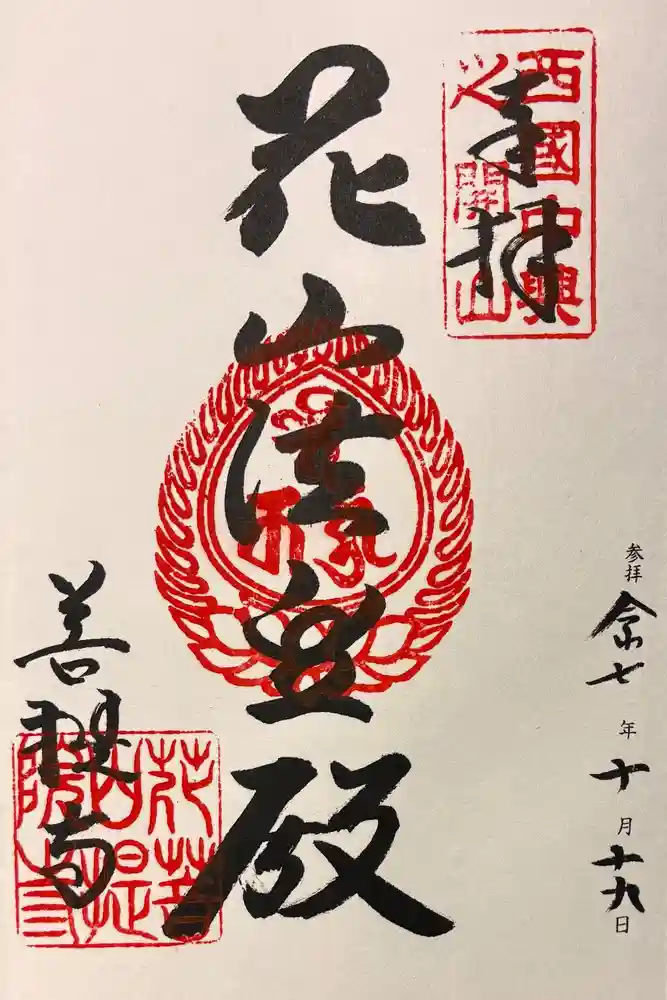 奉拝
西國中興
之開山
花山法皇殿
参拝 令和七年十月十九日
菩提寺
花山院
菩提寺